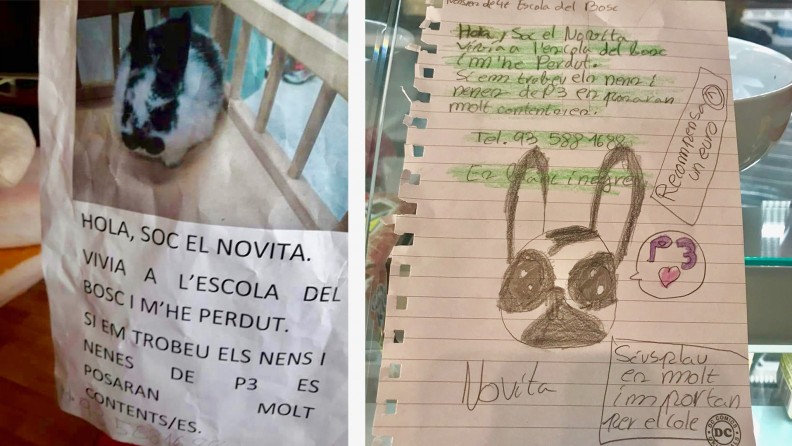 HOLA, SOC EL NOVITA.
VIVIA A L'ESCOLA DEL
BOSC I M'HE PERDUT.
SI EM TROBEU ELS NENS I
NENES DE P3 ES
POSARAN MOLT
CONTENTS/ES.
Escola del Bosc
Hola, Soc el Novita
vivia a l'escola del bosc
i m'he Perdut.
Si em trobeu els nens i
nenes de P3 en posaran
molt contents/es.
Tel. 93 588 1688
Es blanc i negre
Recompensa
un euro 1
P3
Novita
Sisusplau
es molt
important
per el cole
DC COMICS
DC